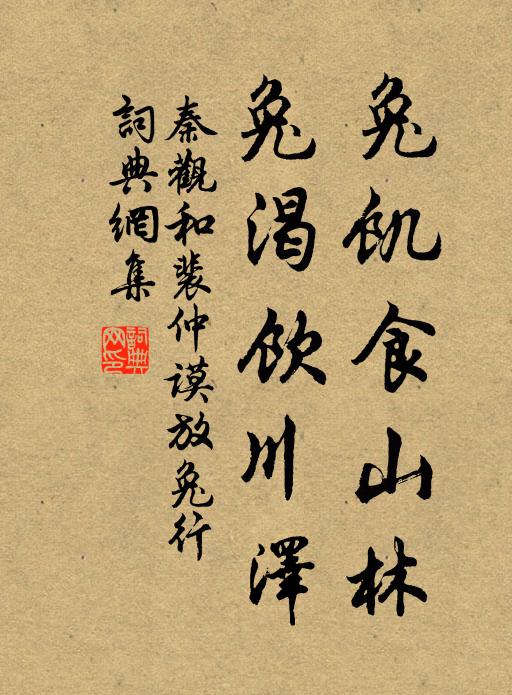 兔飢食山林
兔渴飲川澤
秦觀和裴仲謨放兔行
詞典網集
詞典網印